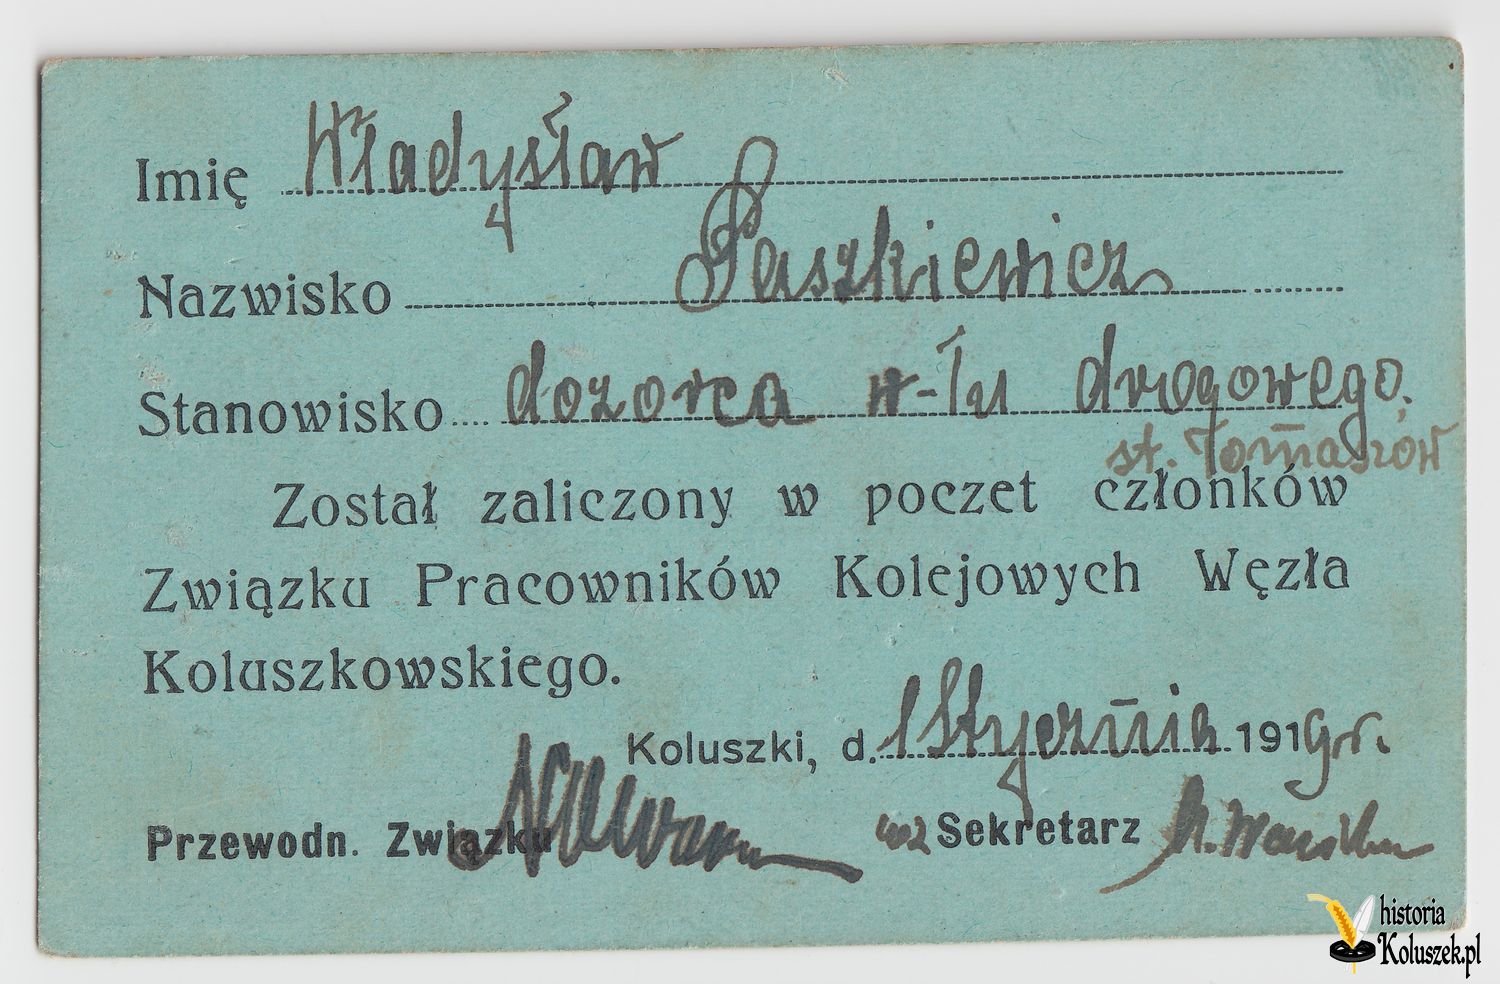 Imię Władysław
Nazwisko Paszkiewicz
Stanowisko dozorca w-łu drogowego,
st. Tomaszów
Został zaliczony w poczet członków
Związku Pracowników Kolejowych Węzła
Koluszkowskiego.
Koluszki, d. 1 Stycznia 1919 r.
Przewodn. Związku wz Sekretarz
historia
Koluszek.pl